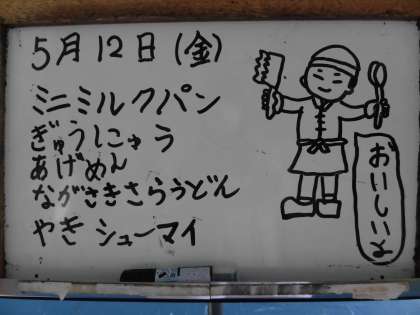 5月12日(金)
ミニミルクパン
ぎゅうにゅう
あげめん
ながさきさらうどん
やきシューマイ
おいしいよ